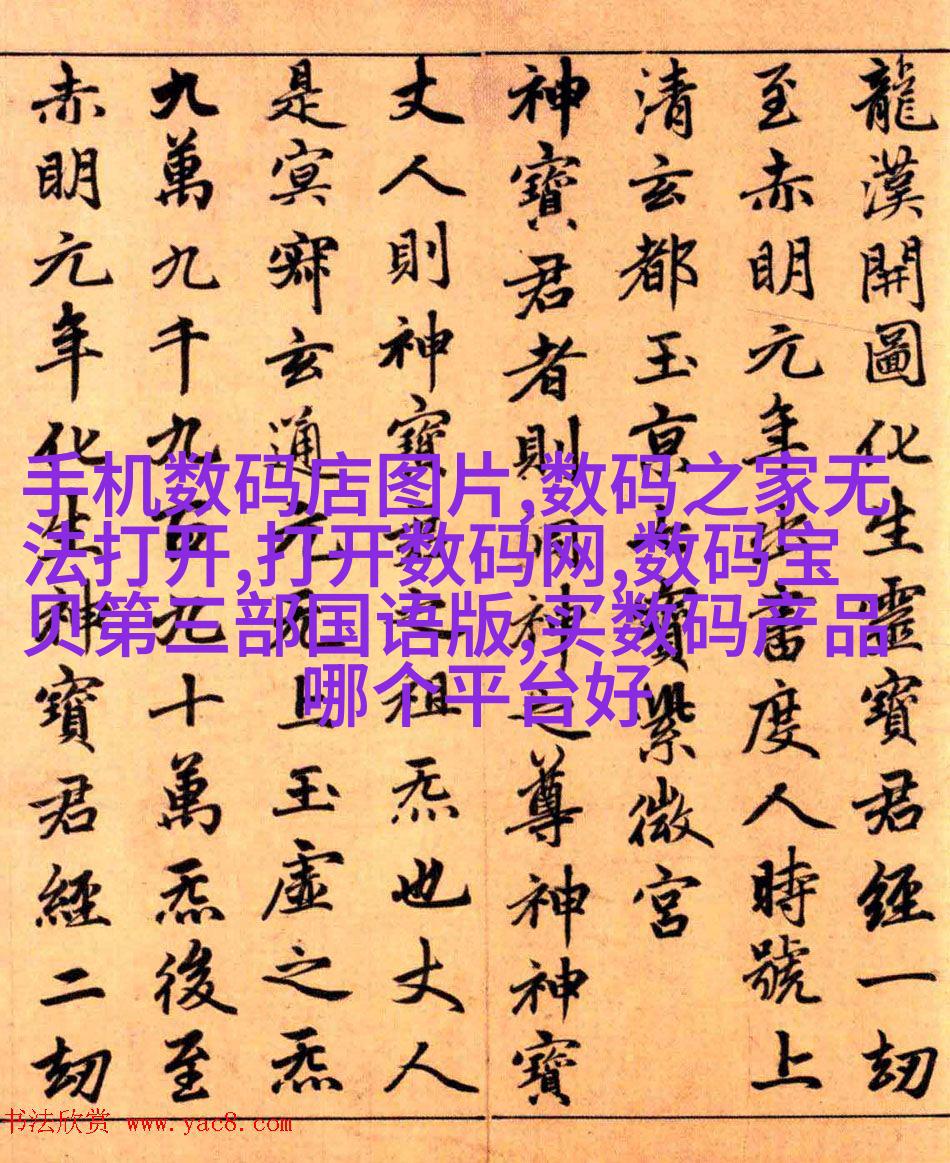 龍漢開圖化生靈寶君經一劫
至赤明元年出書度人時號上
清玄都玉京七寶紫微宮
神寶君者則洞神之尊神神寶
丈人則神寶君之祖炁也丈人
是冥寂玄通元无上玉虛之炁
九萬九千九百九十萬炁後至
赤明元年化生神寶君經二劫
手机数码店图片,数码之家无
法打开,打开数码网,数码宝
贝第三部国语版,买数码产品
哪个平台好
书法欣赏 www.yac8.com